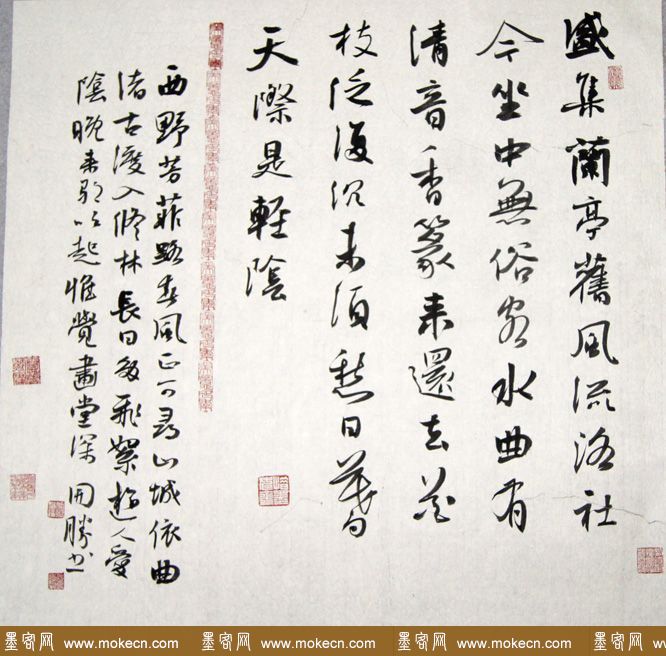 盛集蘭亭舊風流洛社
今坐中無俗客水曲有
清音香篆来還去花
枝泛復沉未須愁日暮
天際是輕陰
西野芳菲路春風正可尋山城依曲
渚古渡入修林長日多飛絮遊人愛
陰晚来歌吹起惟覺畫堂深 勝书
墨客网 www.mokecn.com 墨客网 www.mokecn.com 墨客网 www.mokecn.com 墨客网 www.mokecn